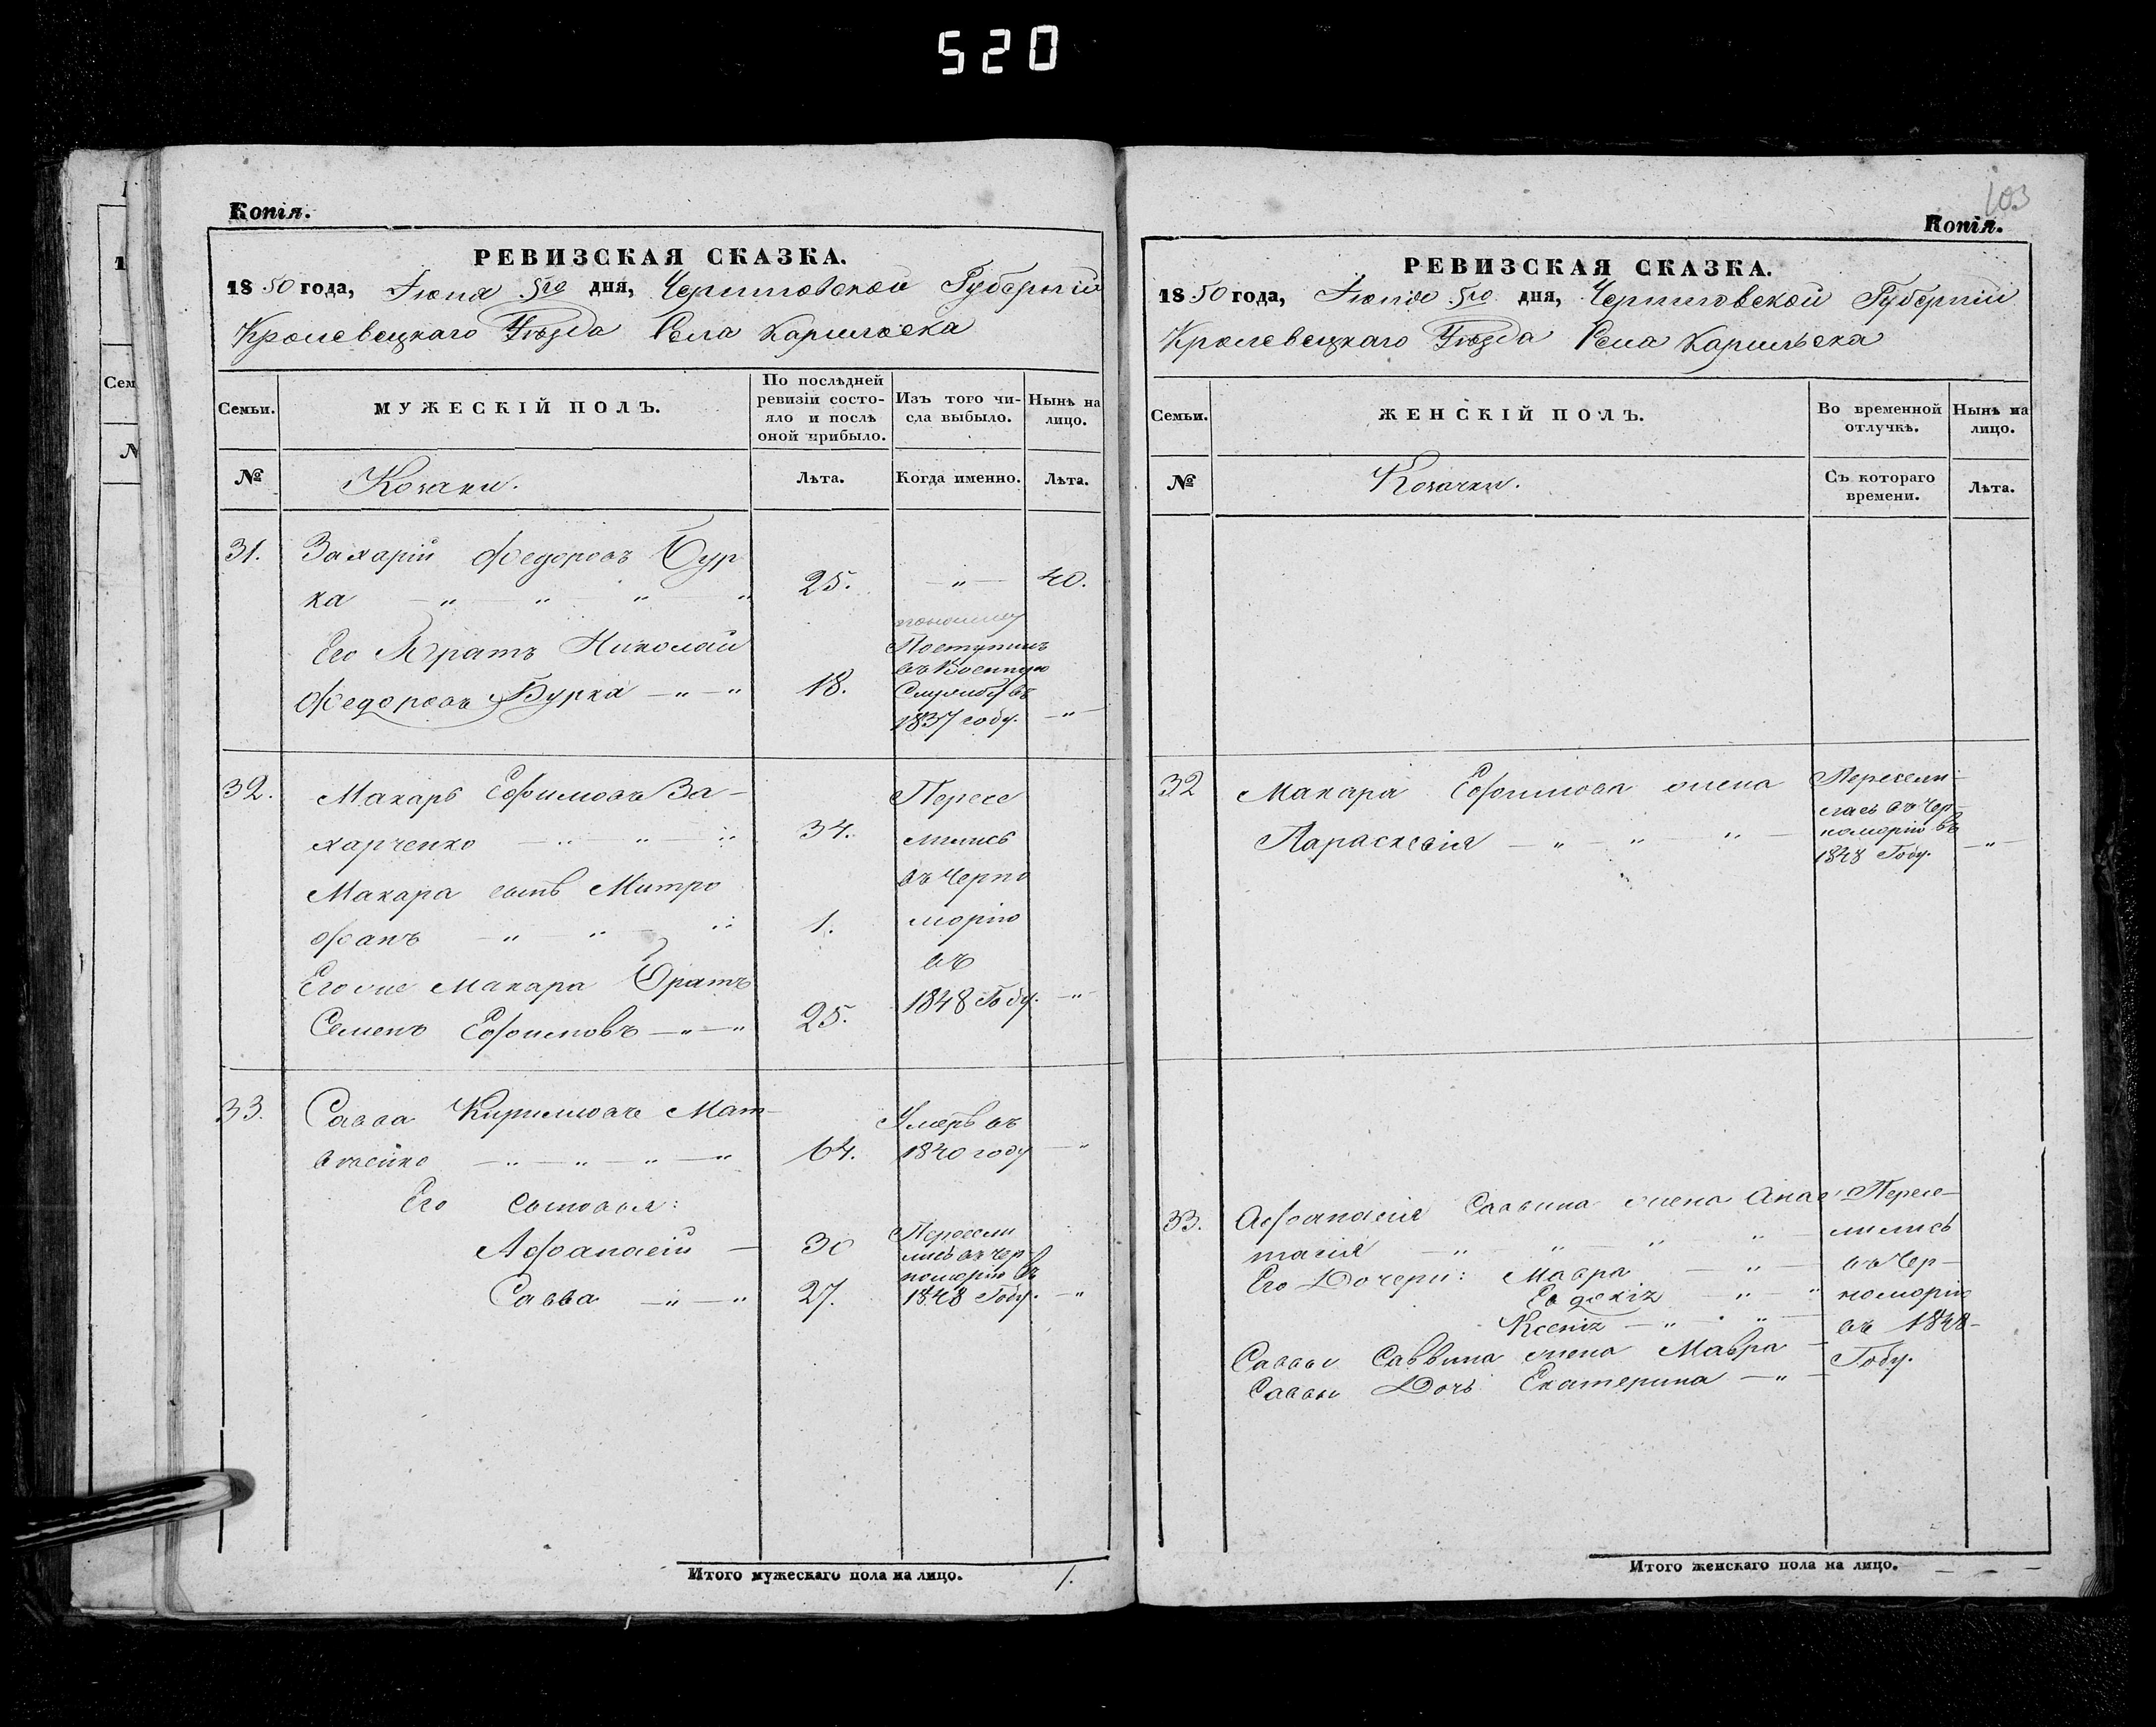 520
Копія.
РЕВИЗСКАЯ СКАЗКА.
1850 года, Іюня 5го дня, Черниговской Губерніи
Кролевецкаго Уѣзда Села Карильска
Семьи.
МУЖЕСКІЙ ПОЛЪ.
По послѣдней
ревизіи состо-
яло и послѣ
оной прибыло.
Изъ того чи-
сла выбыло.
Нынѣ на
лицо.
№
Козаки.
Лѣта.
Когда именно.
Лѣта.
31. Захарій Федоровъ Бур
ка — " — " — " — " 25. — " — 40.
Его Братъ Николай
Федоровъ Бурка — " — " 18.
Поступилъ
въ Военную
Службу въ
1837 году. — " —
32. Макаръ Ефимовъ За-
харченко — " — " — " 34.
Макара сынъ Митро
фанъ — " — " — " 1.
Его же Макара Братъ
Семенъ Ефимовъ — " — " 25.
Пересе
лились
въ Черно
морію
въ
1848 Году. — "
33. Савва Кирилловъ Мат-
вѣенко — " — " — " — " 64.
Умеръ въ
1840 году — "
Его сыновья:
Афанасій — 30
Савва — " — " 27.
Пересели
лись въ Чер-
номорію въ
1848 Году. — "
Итого мужескаго пола на лицо. 1.
103
Копія.
РЕВИЗСКАЯ СКАЗКА.
1850 года, Іюня 5го дня, Черниговской Губерніи
Кролевецкаго Уѣзда Села Карильска
Семьи.
ЖЕНСКІЙ ПОЛЪ.
Во временной
отлучкѣ.
Нынѣ на
лицо.
№
Козачки.
Съ котораго
времени.
Лѣта.
32 Макара Ефимова жена
Параскевія — " — " — " —
Пересели-
лась въ Чер-
номорію въ
1848 Году. — " —
33. Афанасія Саввина жена Анас
тасія — " — " — " — "
Его Дочери: Мавра — " —
Евдокія — " — "
Ксенія — " — " —
Саввы Саввина жена Мавра —
Саввы Дочь Екатерина — " —
Пересе-
лились
въ Чер-
номорію
въ 1848-
Году.
Итого женскаго пола на лицо. — — —